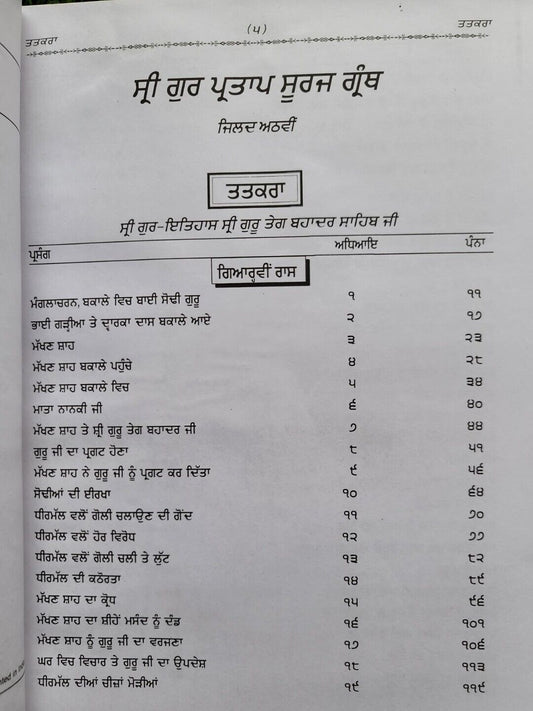 ਤਤਕਰਾ (੫) ਤਤਕਰਾ
ਸ੍ਰੀ ਗੁਰ ਪ੍ਰਤਾਪ ਸੂਰਜ ਗ੍ਰੰਥ
ਜਿਲਦ ਅਠਵੀਂ
ਤਤਕਰਾ
ਸ੍ਰੀ ਗੁਰ-ਇਤਿਹਾਸ ਸ੍ਰੀ ਗੁਰੂ ਤੇਗ ਬਹਾਦਰ ਸਾਹਿਬ ਜੀ
ਪ੍ਰਸੰਗ ਅਧਿਆਇ ਪੰਨਾ
ਗਿਆਰ੍ਹਵੀਂ ਰਾਸ
ਮੰਗਲਾਚਰਨ, ਬਕਾਲੇ ਵਿਚ ਬਾਈ ਸੋਢੀ ਗੁਰੂ ੧ ੧੧
ਭਾਈ ਗੜ੍ਹੀਆ ਤੇ ਦ੍ਵਾਰਕਾ ਦਾਸ ਬਕਾਲੇ ਆਏ ੨ ੧੭
ਮੱਖਣ ਸ਼ਾਹ ੩ ੨੩
ਮੱਖਣ ਸ਼ਾਹ ਬਕਾਲੇ ਪਹੁੰਚੇ ੪ ੨੮
ਮੱਖਣ ਸ਼ਾਹ ਬਕਾਲੇ ਵਿਚ ੫ ੩੪
ਮਾਤਾ ਨਾਨਕੀ ਜੀ ੬ ੪੦
ਮੱਖਣ ਸ਼ਾਹ ਤੇ ਸ਼੍ਰੀ ਗੁਰੂ ਤੇਗ ਬਹਾਦਰ ਜੀ ੭ ੪੪
ਗੁਰੂ ਜੀ ਦਾ ਪ੍ਰਗਟ ਹੋਣਾ ੮ ੫੧
ਮੱਖਣ ਸ਼ਾਹ ਨੇ ਗੁਰੂ ਜੀ ਨੂੰ ਪ੍ਰਗਟ ਕਰ ਦਿੱਤਾ ੯ ੫੬
ਸੋਢੀਆਂ ਦੀ ਈਰਖਾ ੧੦ ੬੪
ਧੀਰਮੱਲ ਵਲੋਂ ਗੋਲੀ ਚਲਾਉਣ ਦੀ ਗੋਂਦ ੧੧ ੭੦
ਧੀਰਮੱਲ ਵਲੋਂ ਹੋਰ ਵਿਰੋਧ ੧੨ ੭੭
ਧੀਰਮੱਲ ਵਲੋਂ ਗੋਲੀ ਚਲੀ ਤੇ ਲੁੱਟ ੧੩ ੮੨
ਧੀਰਮੱਲ ਦੀ ਕਠੋਰਤਾ ੧੪ ੮੯
ਮੱਖਣ ਸ਼ਾਹ ਦਾ ਕ੍ਰੋਧ ੧੫ ੯੬
ਮੱਖਣ ਸ਼ਾਹ ਦਾ ਸ਼ੀਹੇਂ ਮਸੰਦ ਨੂੰ ਦੰਡ ੧੬ ੧੦੧
ਮੱਖਣ ਸ਼ਾਹ ਨੂੰ ਗੁਰੂ ਜੀ ਦਾ ਵਰਜਣਾ ੧੭ ੧੦੬
ਘਰ ਵਿਚ ਵਿਚਾਰ ਤੇ ਗੁਰੂ ਜੀ ਦਾ ਉਪਦੇਸ਼ ੧੮ ੧੧੩
ਧੀਰਮੱਲ ਦੀਆਂ ਚੀਜ਼ਾਂ ਮੋੜੀਆਂ ੧੯ ੧੧੯